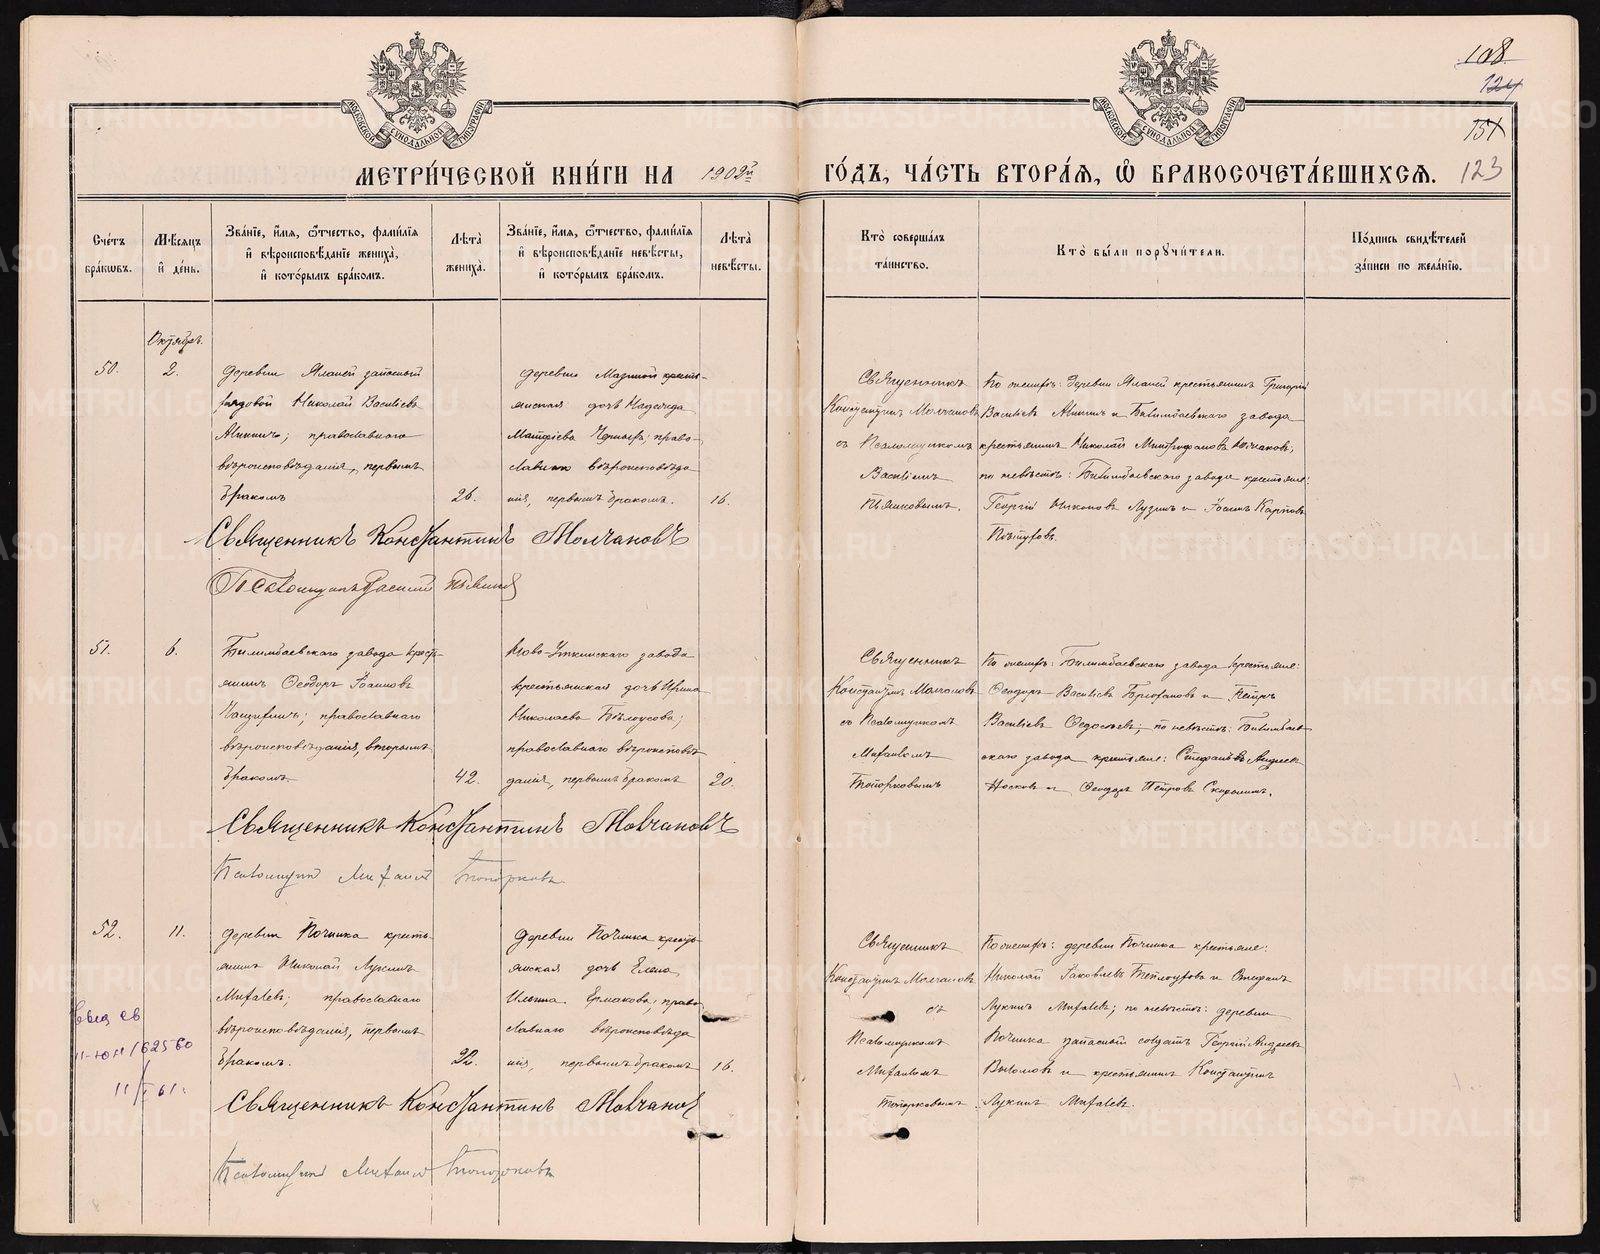 108
124
151
МОСКОВСКОЙ СѴНОДАЛЬНОЙ ТИПОГРАФІИ
МОСКОВСКОЙ СѴНОДАЛЬНОЙ ТИПОГРАФІИ
МЕТРИ́ЧЕСКОЙ КНИ́ГИ НА 1902й ГО́ДЪ, ЧА́СТЬ ВТОРА́Я, Ѽ БРАКОСОЧЕТА́ВШИХСЯ. 123
Сче́тъ бра́ковъ.
Мѣ́сяцъ и҆ де́нь.
Зва́нїе, и҆́мя, ѻ҆́тчество, фами́лїя и҆ вѣроисповѣ́данїе жениха̀, и҆ кото́рымъ бра́комъ.
Лѣта̀ жениха̀.
Зва́нїе, и҆́мя, ѻ҆́тчество, фами́лїя и҆ вѣроисповѣ́данїе невѣ́сты, и҆ кото́рымъ бра́комъ.
Лѣта̀ невѣ́сты.
Кто̀ соверша́лъ та́инство.
Кто̀ бы́ли порꙋчи́тели.
По́дпись свидѣ́телей за́писи по жела́нїю.
Октябрь.
50.
2.
деревни запасный
рядовой Николай Васильевъ
православнаго
вѣроисповѣданія, первымъ
бракомъ
26.
деревни кресть-
янская дочь Надежда
право-
славнаго вѣроисповѣда
нія, первымъ бракомъ.
16.
Священникъ
Константинъ Молчановъ
съ Псаломщикомъ
Василіемъ
По женихѣ: деревни крестьянинъ Григорій
Васильевъ и Билимбаевскаго завода
крестьянинъ Николай Митрофановъ
по невѣстѣ: Билимбаевскаго завода крестьяне:
Георгій Никоновъ Лузинъ и Карповъ
Пѣтуховъ.
Священникъ Константинъ Молчановъ
Псаломщикъ Василій
51.
6.
Билимбаевскаго завода кресть-
янинъ Ѳеодоръ Іоанновъ
православнаго
вѣроисповѣданія, вторымъ
бракомъ.
42.
Ново-Уткинскаго завода
крестьянская дочь Ирина
Николаева Бѣлоусова;
православнаго вѣроисповѣ
данія, первымъ бракомъ
20.
Священникъ
Константинъ Молчановъ
съ Псаломщикомъ
Михаиломъ
Топорковымъ
По женихѣ: Билимбаевскаго завода крестьяне:
Ѳеодоръ Васильевъ и Петръ
Васильевъ Ѳедосѣевъ; по невѣстѣ: Билимбаев
скаго завода крестьяне: Андреев
Носковъ и Ѳеодоръ Петровъ Скорынинъ.
Священникъ Константинъ Молчановъ
Псаломщикъ Михаилъ Топорковъ
52.
11.
деревни Починка кресть-
янинъ Николай Лукинъ
Михалевъ; православнаго
вѣроисповѣданія, первымъ
бракомъ.
22.
деревни Починка кресть
янская дочь Елена
Ильина Ермакова; право
славнаго вѣроисповѣда
нія, первымъ бракомъ
16.
Священникъ
Константинъ Молчановъ
съ
Псаломщикомъ
Михаиломъ
Топорковымъ
По женихѣ: деревни Починка крестьяне:
Николай Яковлевъ Теплоуховъ и Стефанъ
Лукинъ Михалевъ; по невѣстѣ: деревни
Починка запасный солдатъ Георгій Андреевъ
и крестьянинъ Константинъ
Лукинъ Михалевъ.
св
II-ЮН 162560
11/I 61г.
Священникъ Константинъ Молчановъ
Псаломщикъ Михаилъ Топорковъ
METRIKI.GASO-URAL.RU